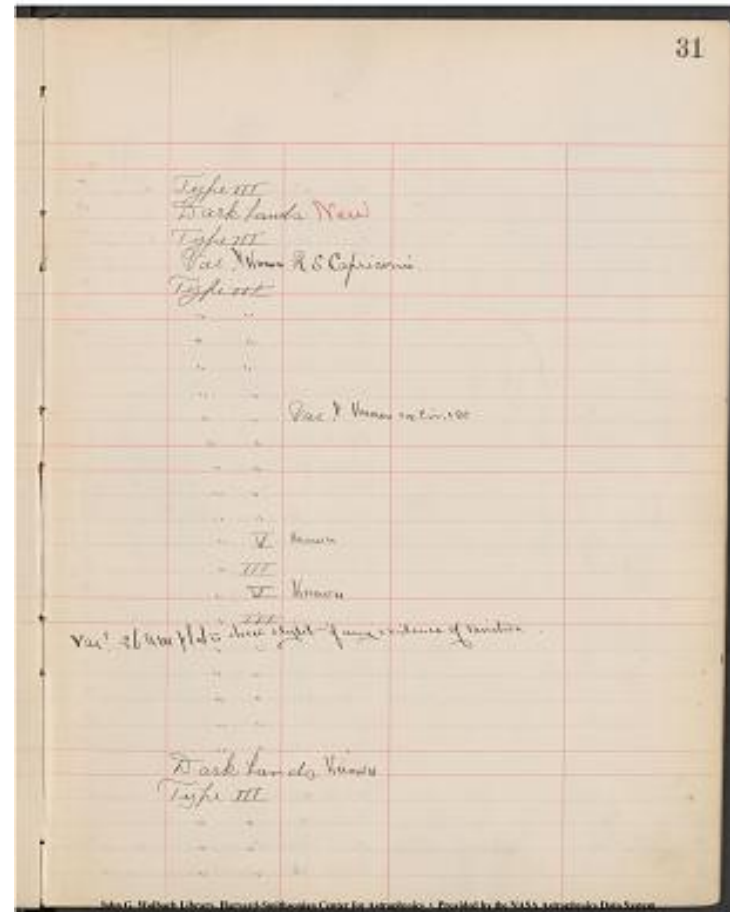 31
Type III
Dark bands New
Type III
Var. Known R S Capricorni.
Type III
" "
" "
" "
" "
" " Var Known
" "
" "
" "
" "
" V Known
" III
" V Known
" III
Var? plates show slight if any evidence of variation.
" "
" "
" "
" "
Dark bands Known
Type III
" "
" "
" "
John G. Wolbach Library, Harvard-Smithsonian Center for Astrophysics • Provided by the NASA Astrophysics Data System